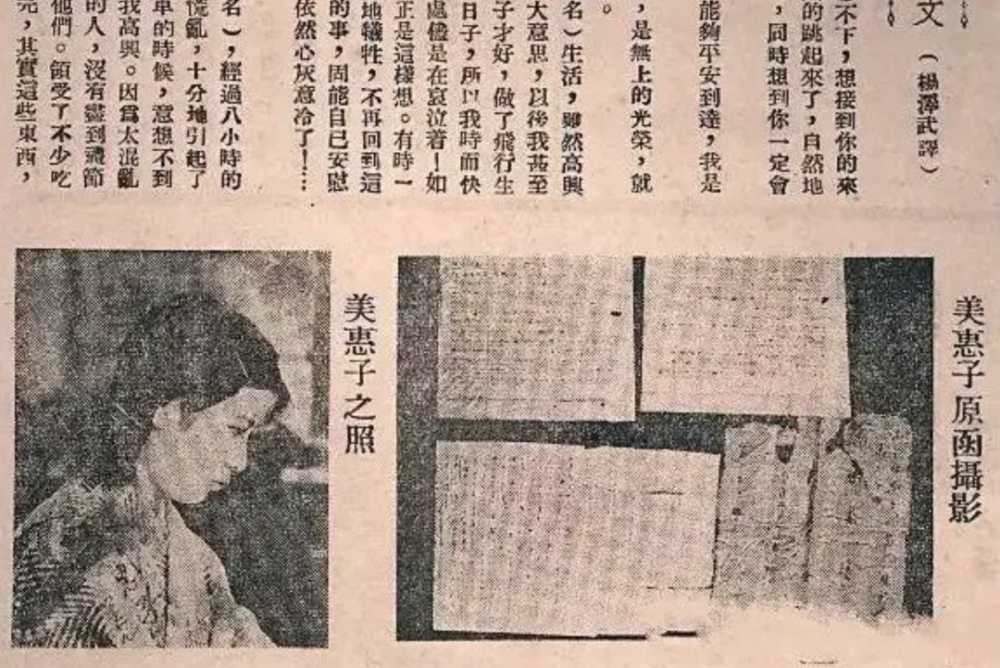 文 （楊澤武譯）
不下，想接到你的來
的跳起來了，自然地
，同時想到你一定會
能夠平安到達，我是
，是無上的光榮，就
。
名）生活，雖然高興
大意思，以後我甚至
子才好，做了飛行生
日子，所以我時而快
處儘是在哀泣着！如
正是這樣想。有時一
地犧牲，不再回到這
的事，固能自己安慰
依然心灰意冷了！…
名），經過八小時的
慌亂，十分地引起了
車的時候，意想不到
我高興。因爲太混亂
的人，沒有盡到禮節
他們。領受了不少吃
完，其實這些東西，
美惠子原函攝影
美惠子之照